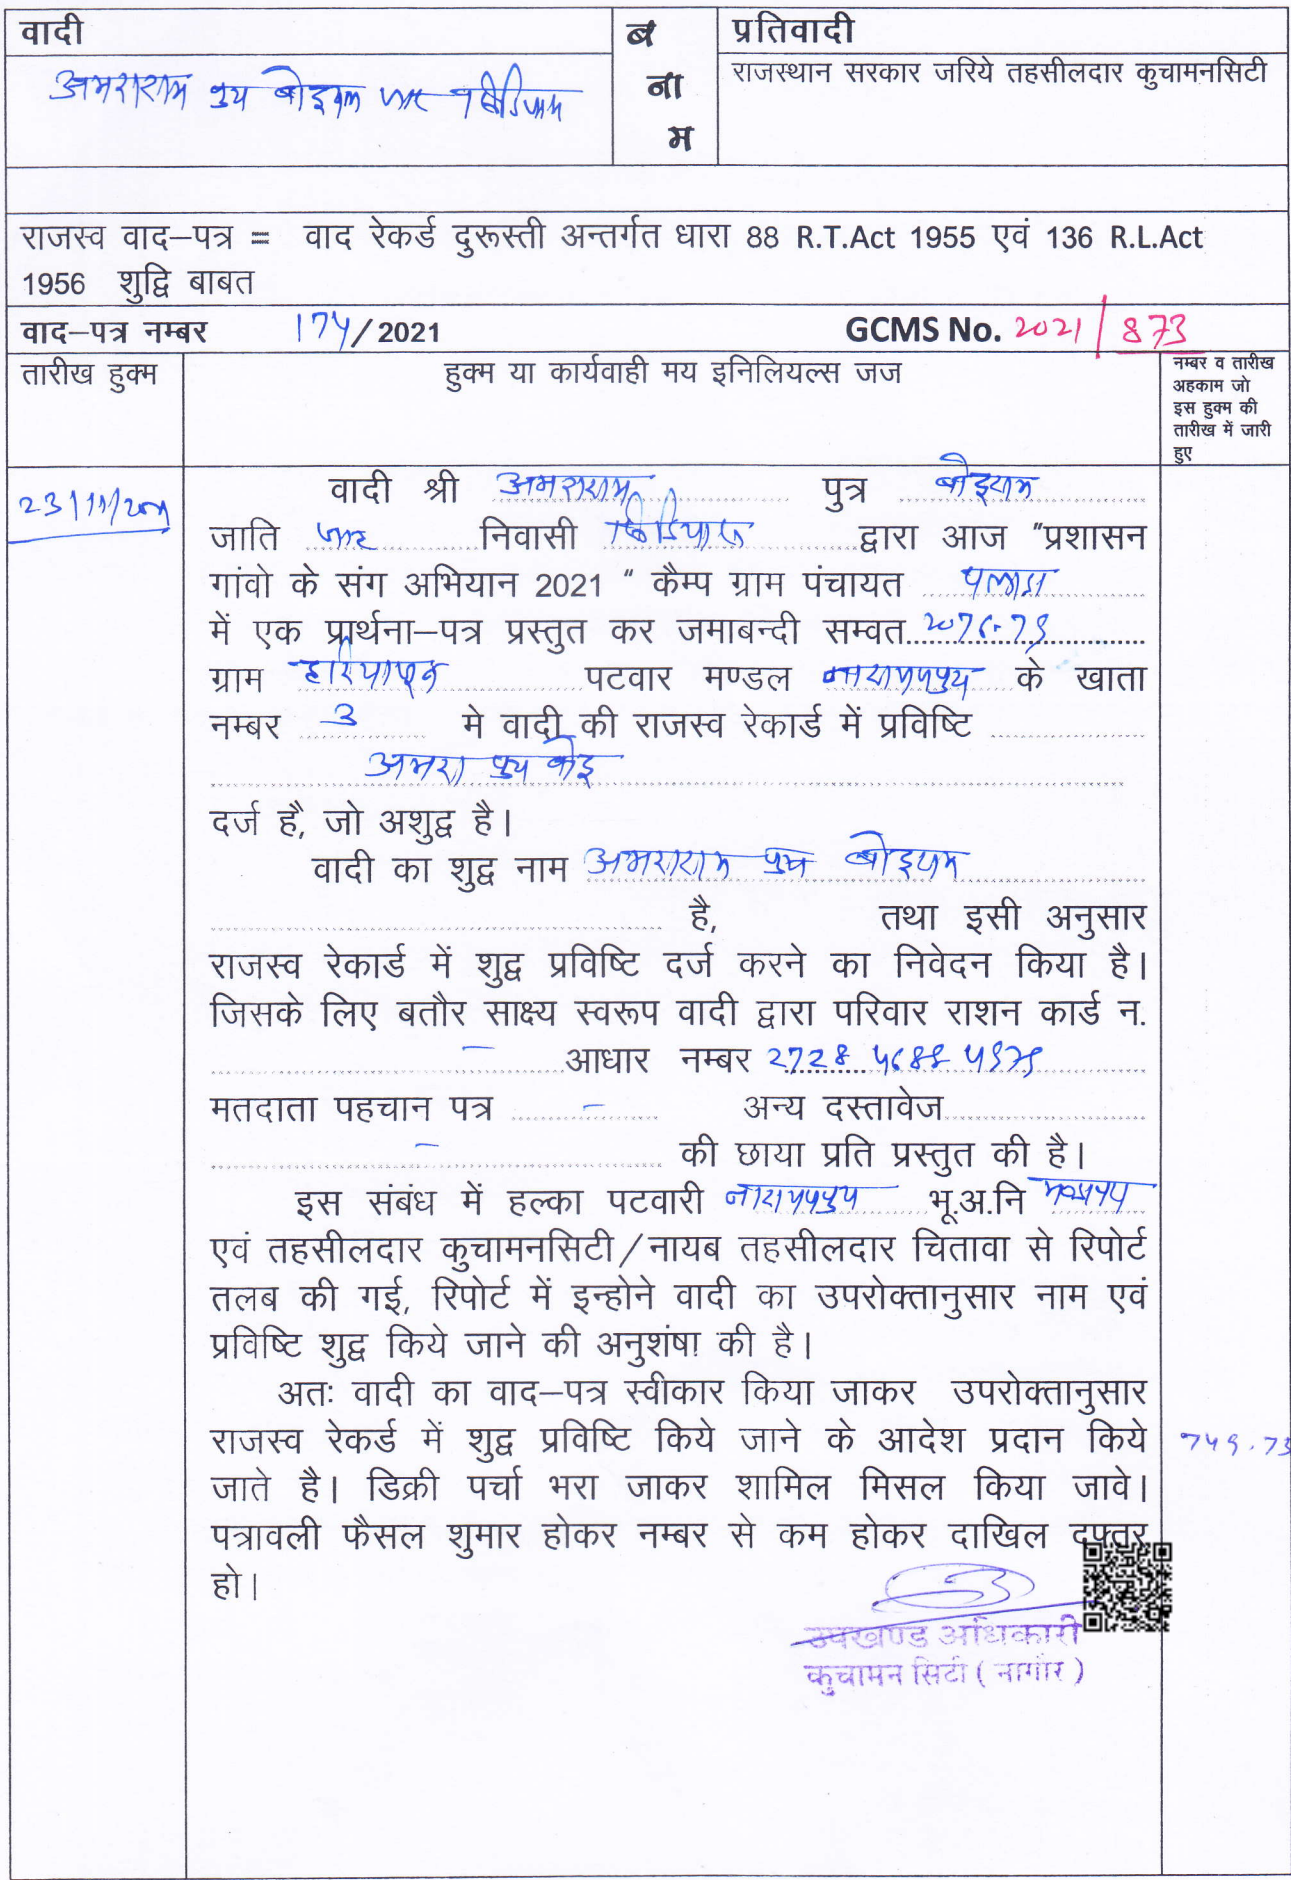 वादी
ब
ना
म
प्रतिवादी
राजस्थान सरकार जरिये तहसीलदार कुचामनसिटी
अमराराम पुत्र बोईराम जाट
राजस्व वाद–पत्र = वाद रेकर्ड दुरूस्ती अन्तर्गत धारा 88 R.T.Act 1955 एवं 136 R.L.Act
1956 शुद्वि बाबत
वाद–पत्र नम्बर 174/2021 GCMS No. 2021/873
तारीख हुक्म
हुक्म या कार्यवाही मय इनिलियल्स जज
नम्बर व तारीख
अहकाम जो
इस हुक्म की
तारीख में जारी
हुए
23/11/2021
वादी श्री अमराराम पुत्र बोईराम
जाति जाट निवासी द्वारा आज "प्रशासन
गांवो के संग अभियान 2021 " कैम्प ग्राम पंचायत पलाडा
में एक प्रार्थना–पत्र प्रस्तुत कर जमाबन्दी सम्वत 2076-79
ग्राम पटवार मण्डल नारायणपुरा के खाता
नम्बर 3 मे वादी की राजस्व रेकार्ड में प्रविष्टि
अमरा पुत्र बोई
दर्ज है, जो अशुद्व है।
वादी का शुद्व नाम अमराराम पुत्र बोईराम
है, तथा इसी अनुसार
राजस्व रेकार्ड में शुद्व प्रविष्टि दर्ज करने का निवेदन किया है।
जिसके लिए बतौर साक्ष्य स्वरूप वादी द्वारा परिवार राशन कार्ड न.
– आधार नम्बर 2728 5688 5979
मतदाता पहचान पत्र – अन्य दस्तावेज
– की छाया प्रति प्रस्तुत की है।
इस संबंध में हल्का पटवारी नारायणपुरा भू.अ.नि
एवं तहसीलदार कुचामनसिटी/नायब तहसीलदार चितावा से रिपोर्ट
तलब की गई, रिपोर्ट में इन्होने वादी का उपरोक्तानुसार नाम एवं
प्रविष्टि शुद्व किये जाने की अनुशंषा की है।
अतः वादी का वाद–पत्र स्वीकार किया जाकर उपरोक्तानुसार
राजस्व रेकर्ड में शुद्व प्रविष्टि किये जाने के आदेश प्रदान किये
जाते है। डिक्री पर्चा भरा जाकर शामिल मिसल किया जावे।
पत्रावली फैसल शुमार होकर नम्बर से कम होकर दाखिल दफ्तर
हो।
उपखण्ड अधिकारी
कुचामन सिटी ( नागौर )